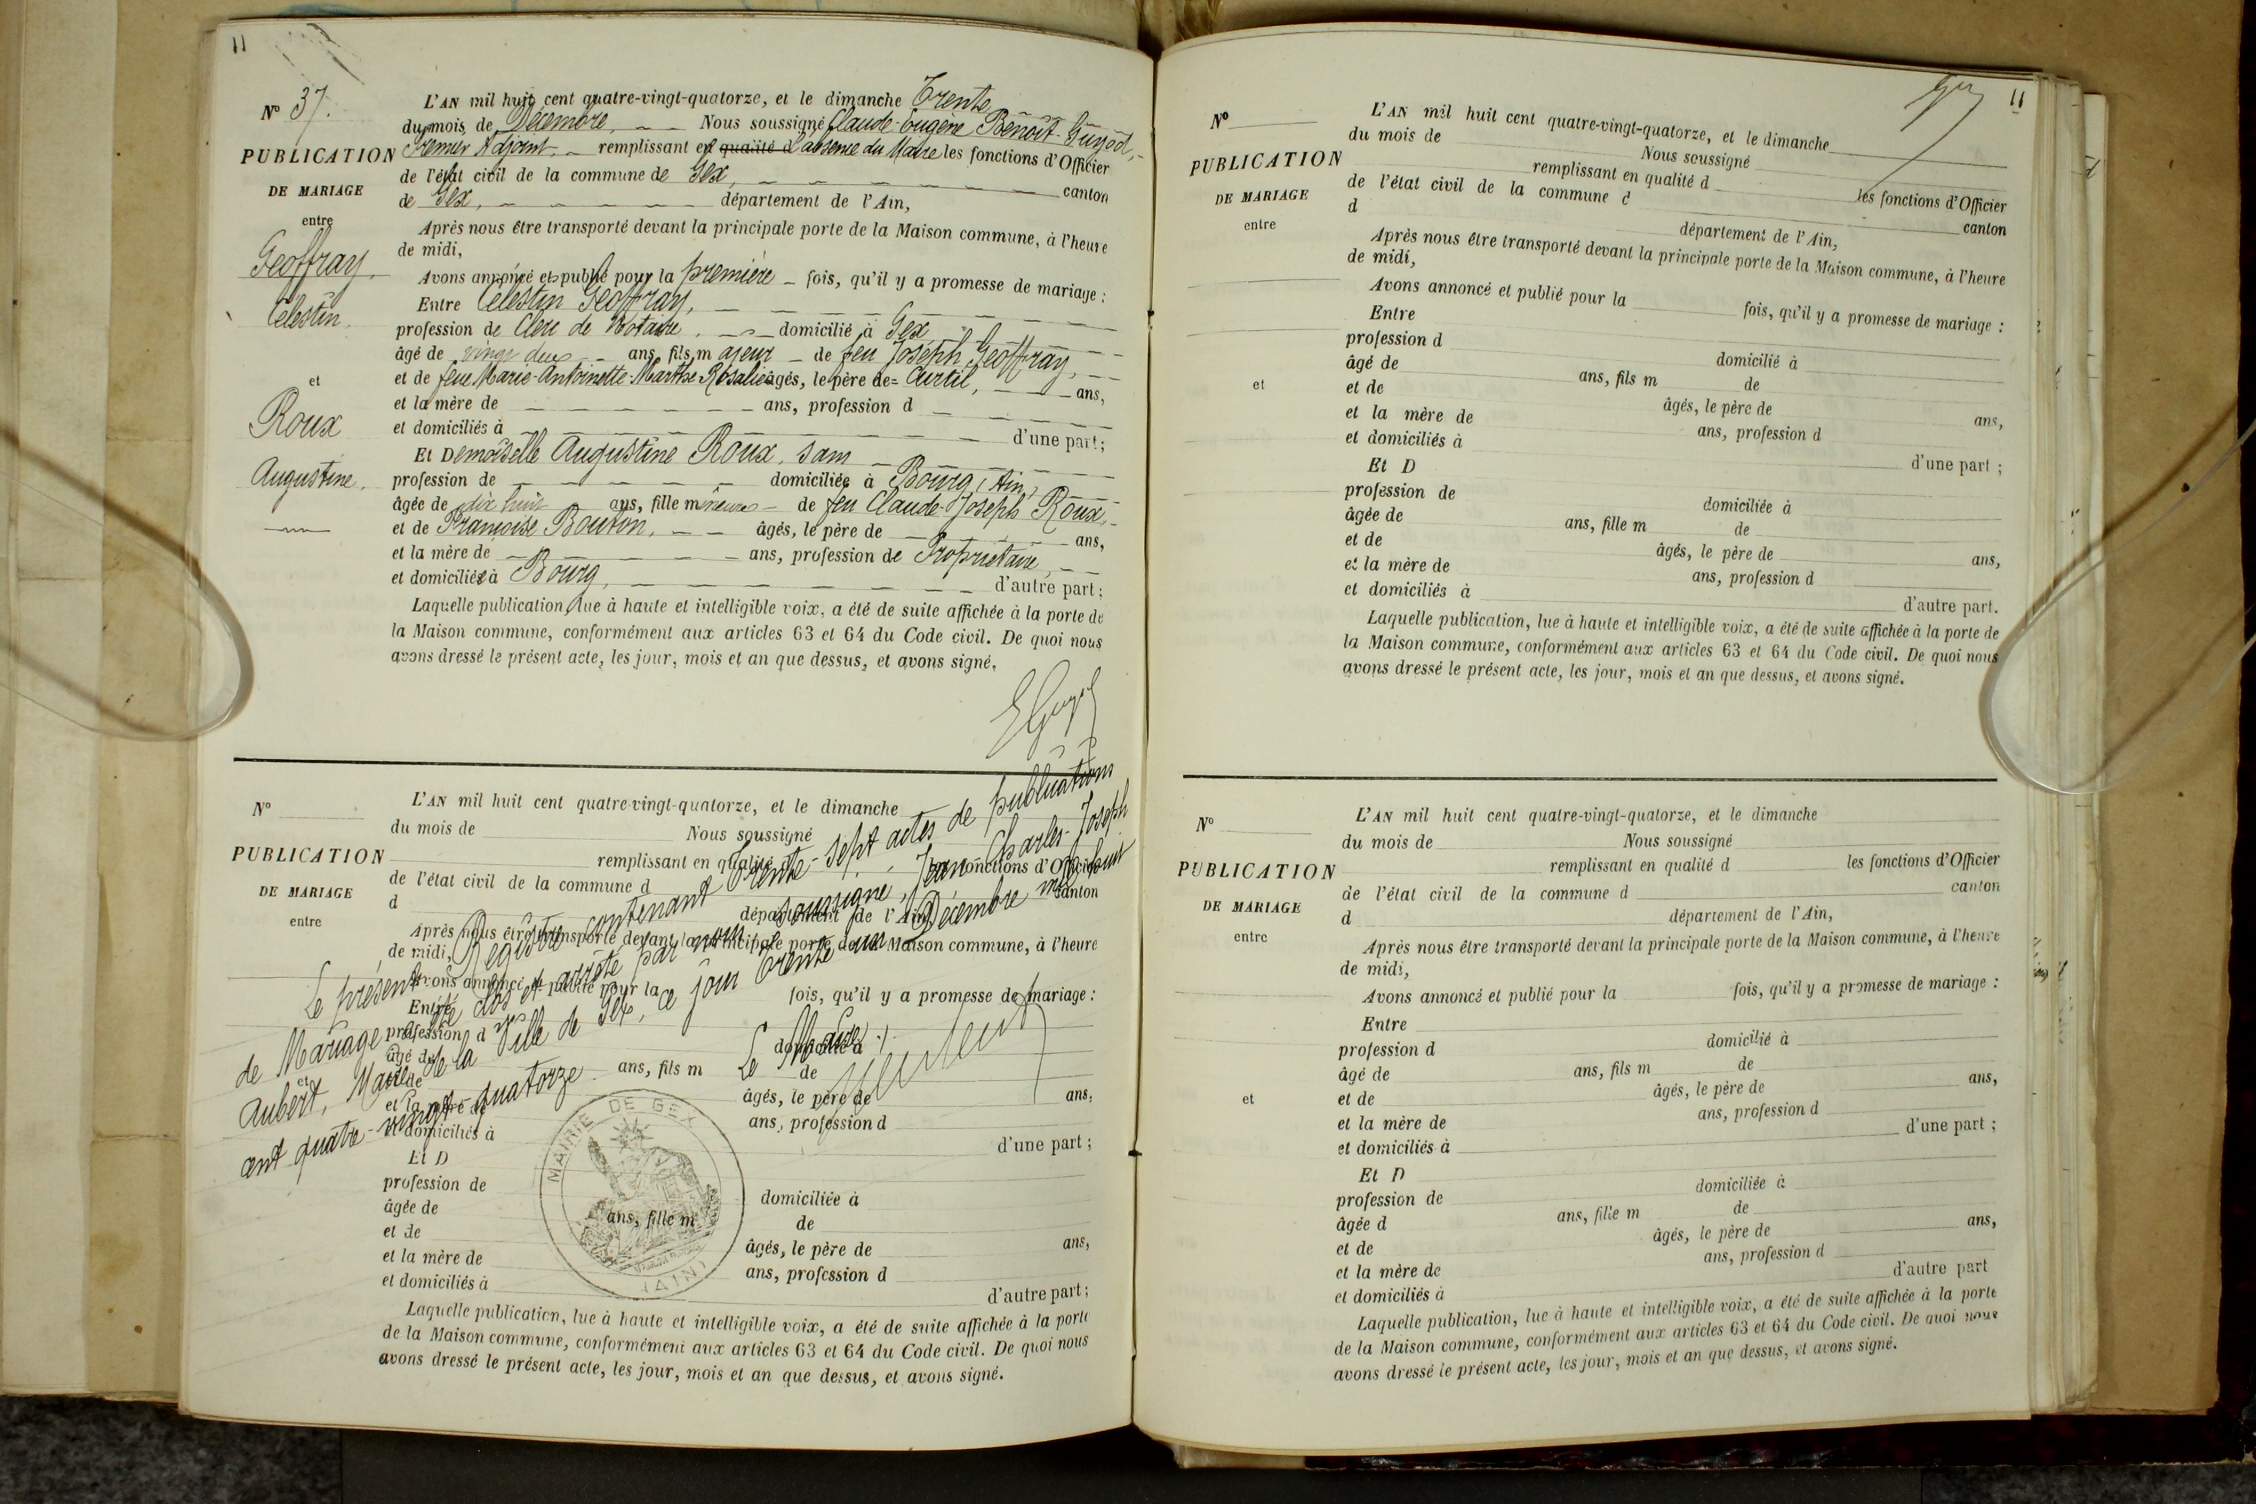 11
N° 37.
PUBLICATION
DE MARIAGE
entre
Geoffray
Célestin.
et
Roux
Augustine.
L'AN mil huit cent quatre-vingt-quatorze, et le dimanche Trente
du mois de Décembre, Nous soussigné Claude-Eugène Benoit-Guyod,
Premier Adjoint, remplissant en qualité d l'absence du Maire les fonctions d'Officier
de l'état civil de la commune de Gex, canton
de Gex, département de l'Ain,
Après nous être transporté devant la principale porte de la Maison commune, à l'heure
de midi,
Avons annoncé et publié pour la première fois, qu'il y a promesse de mariage :
Entre Célestin Geoffray,
profession de Clerc de Notaire, domicilié à Gex
âgé de vingt deux ans, fils majeur de feu Joseph Geoffray,
et de feue Marie-Antoinette-Marthe Rosalie âgés, le père de = Curtil, ans,
et la mère de ans, profession d
et domiciliés à d'une part;
Et Demoiselle Augustine Roux, sans
profession de domiciliée à Bourg (Ain)
âgée de dix huit ans, fille mineure de feu Claude-Joseph Roux,
et de Françoise Bouton, âgés, le père de ans,
et la mère de ans, profession de Propriétaire,
et domiciliée à Bourg, d'autre part;
Laquelle publication, lue à haute et intelligible voix, a été de suite affichée à la porte de
la Maison commune, conformément aux articles 63 et 64 du Code civil. De quoi nous
avons dressé le présent acte, les jour, mois et an que dessus, et avons signé.
N°
PUBLICATION
DE MARIAGE
entre
et
L'AN mil huit cent quatre-vingt-quatorze, et le dimanche
du mois de Nous soussigné
remplissant en qualité d les fonctions d'Officier
de l'état civil de la commune d canton
d département de l'Ain,
Après nous être transporté devant la principale porte de la Maison commune, à l'heure
de midi,
Avons annoncé et publié pour la fois, qu'il y a promesse de mariage :
Entre
profession d domicilié à
âgé de ans, fils m de
et de âgés, le père de ans,
et la mère de ans, profession d
et domiciliés à d'une part;
Et D
profession de domiciliée à
âgée de ans, fille m de
et de âgés, le père de ans,
et la mère de ans, profession d
et domiciliés à d'autre part;
Laquelle publication, lue à haute et intelligible voix, a été de suite affichée à la porte
de la Maison commune, conformément aux articles 63 et 64 du Code civil. De quoi nous
avons dressé le présent acte, les jour, mois et an que dessus, et avons signé.
Le présent Registre contenant Trente-sept actes de publications
de Mariage a été clos et arrêté par nous soussigné, Jean Charles-Joseph
Aubert, Maire de la Ville de Gex, ce jour trente un Décembre mil huit
cent quatre-vingt-quatorze
Le Maire
MAIRIE DE GEX
(AIN)
11
N°
PUBLICATION
DE MARIAGE
entre
et
L'AN mil huit cent quatre-vingt-quatorze, et le dimanche
du mois de Nous soussigné
remplissant en qualité d les fonctions d'Officier
de l'état civil de la commune d canton
d département de l'Ain,
Après nous être transporté devant la principale porte de la Maison commune, à l'heure
de midi,
Avons annoncé et publié pour la fois, qu'il y a promesse de mariage :
Entre
profession d domicilié à
âgé de ans, fils m de
et de âgés, le père de ans,
et la mère de ans, profession d
et domiciliés à d'une part ;
Et D
profession de domiciliée à
âgée de ans, fille m de
et de âgés, le père de ans,
et la mère de ans, profession d
et domiciliés à d'autre part.
Laquelle publication, lue à haute et intelligible voix, a été de suite affichée à la porte de
la Maison commune, conformément aux articles 63 et 64 du Code civil. De quoi nous
avons dressé le présent acte, les jour, mois et an que dessus, et avons signé.
N°
PUBLICATION
DE MARIAGE
entre
et
L'AN mil huit cent quatre-vingt-quatorze, et le dimanche
du mois de Nous soussigné
remplissant en qualité d les fonctions d'Officier
de l'état civil de la commune d canton
d département de l'Ain,
Après nous être transporté devant la principale porte de la Maison commune, à l'heure
de midi,
Avons annoncé et publié pour la fois, qu'il y a promesse de mariage :
Entre
profession d domicilié à
âgé de ans, fils m de
et de âgés, le père de ans,
et la mère de ans, profession d
et domiciliés à d'une part ;
Et D
profession de domiciliée à
âgée d ans, fille m de
et de âgés, le père de ans,
et la mère de ans, profession d
et domiciliés à d'autre part
Laquelle publication, lue à haute et intelligible voix, a été de suite affichée à la porte
de la Maison commune, conformément aux articles 63 et 64 du Code civil. De quoi nous
avons dressé le présent acte, les jour, mois et an que dessus, et avons signé.